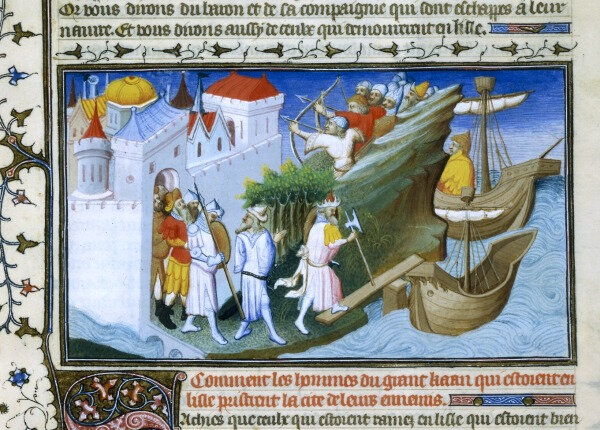 Or vous dirons du baron et de sa compaignie qui sont eschappes a leur
navire. Et vous dirons aussy de ceulx qui demourerent en lisle.
Comment les hommes du grant kaan qui estoient en
lisle pristrent la cite de leurs ennemis.
Sachies que ceulx qui estoient remez en lisle qui estoient bien